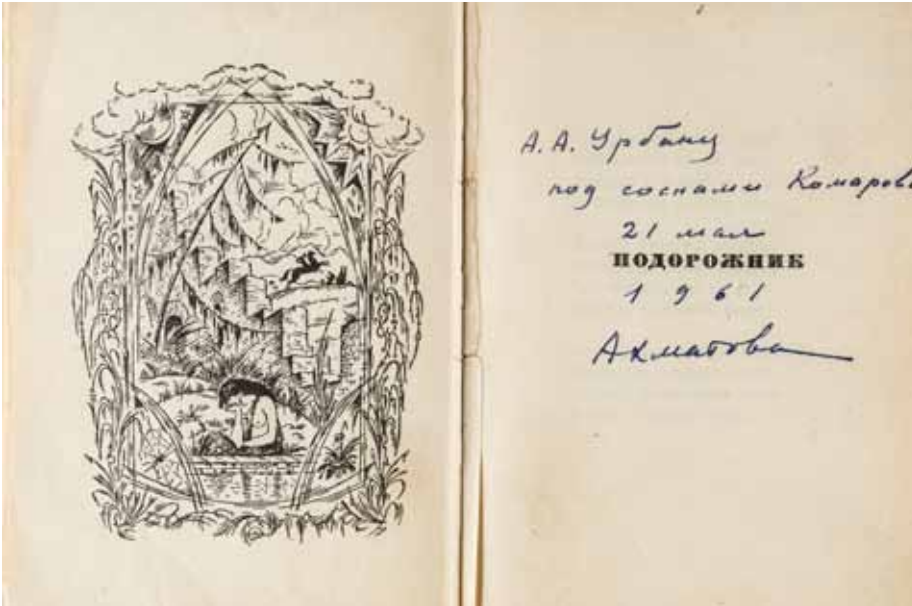 А.А. Урбану
под соснами Комарова
21 мая
ПОДОРОЖНИК
1961
Ахматова